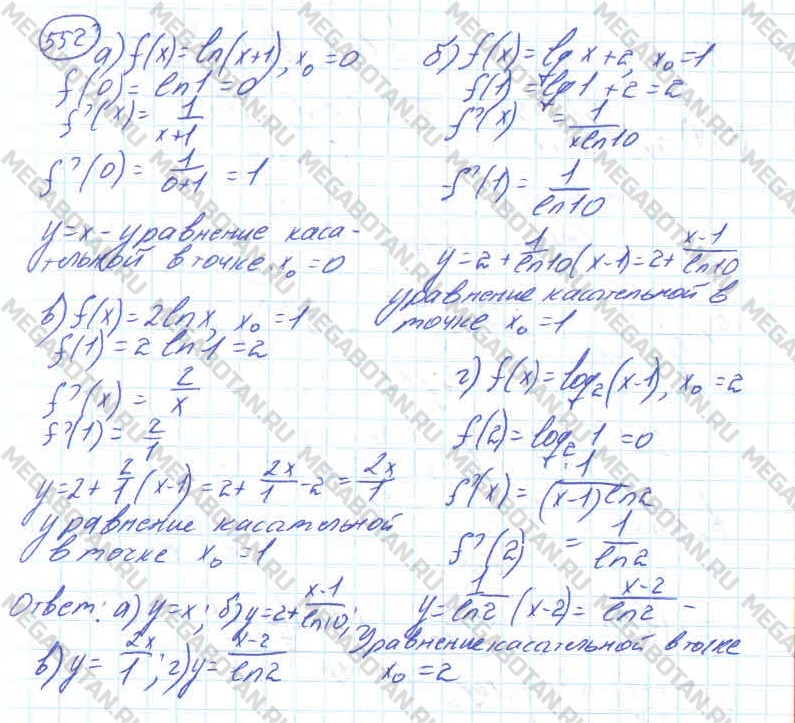 552
а) f(x) = ln(x+1), x₀ = 0
f(0) = ln1 = 0
f'(x) = 1/(x+1)
f'(0) = 1/(0+1) = 1
y = x – уравнение каса-
тельной в точке x₀ = 0
б) f(x) = lg x + 2, x₀ = 1
f(1) = lg1 + 2 = 2
f'(x) = 1/(x ln10)
f'(1) = 1/ln10
y = 2 + 1/ln10 (x-1) = 2 + (x-1)/ln10
уравнение касательной в
точке x₀ = 1
в) f(x) = 2lnx, x₀ = 1
f(1) = 2 ln 1 = 2
f'(x) = 2/x
f'(1) = 2/1
y = 2 + 2/1 (x-1) = 2 + 2x/1 - 2 = 2x/1
уравнение касательной
в точке x₀ = 1
г) f(x) = log₂(x-1), x₀ = 2
f(2) = log₂ 1 = 0
f'(x) = 1/((x-1) ln2)
f'(2) = 1/ln2
y = 1/ln2 (x-2) = (x-2)/ln2 –
уравнение касательной в точке
x₀ = 2
Ответ: а) y = x; б) y = 2 + (x-1)/ln10;
в) y = 2x/1; г) y = (x-2)/ln2
MEGABOTAN.RU